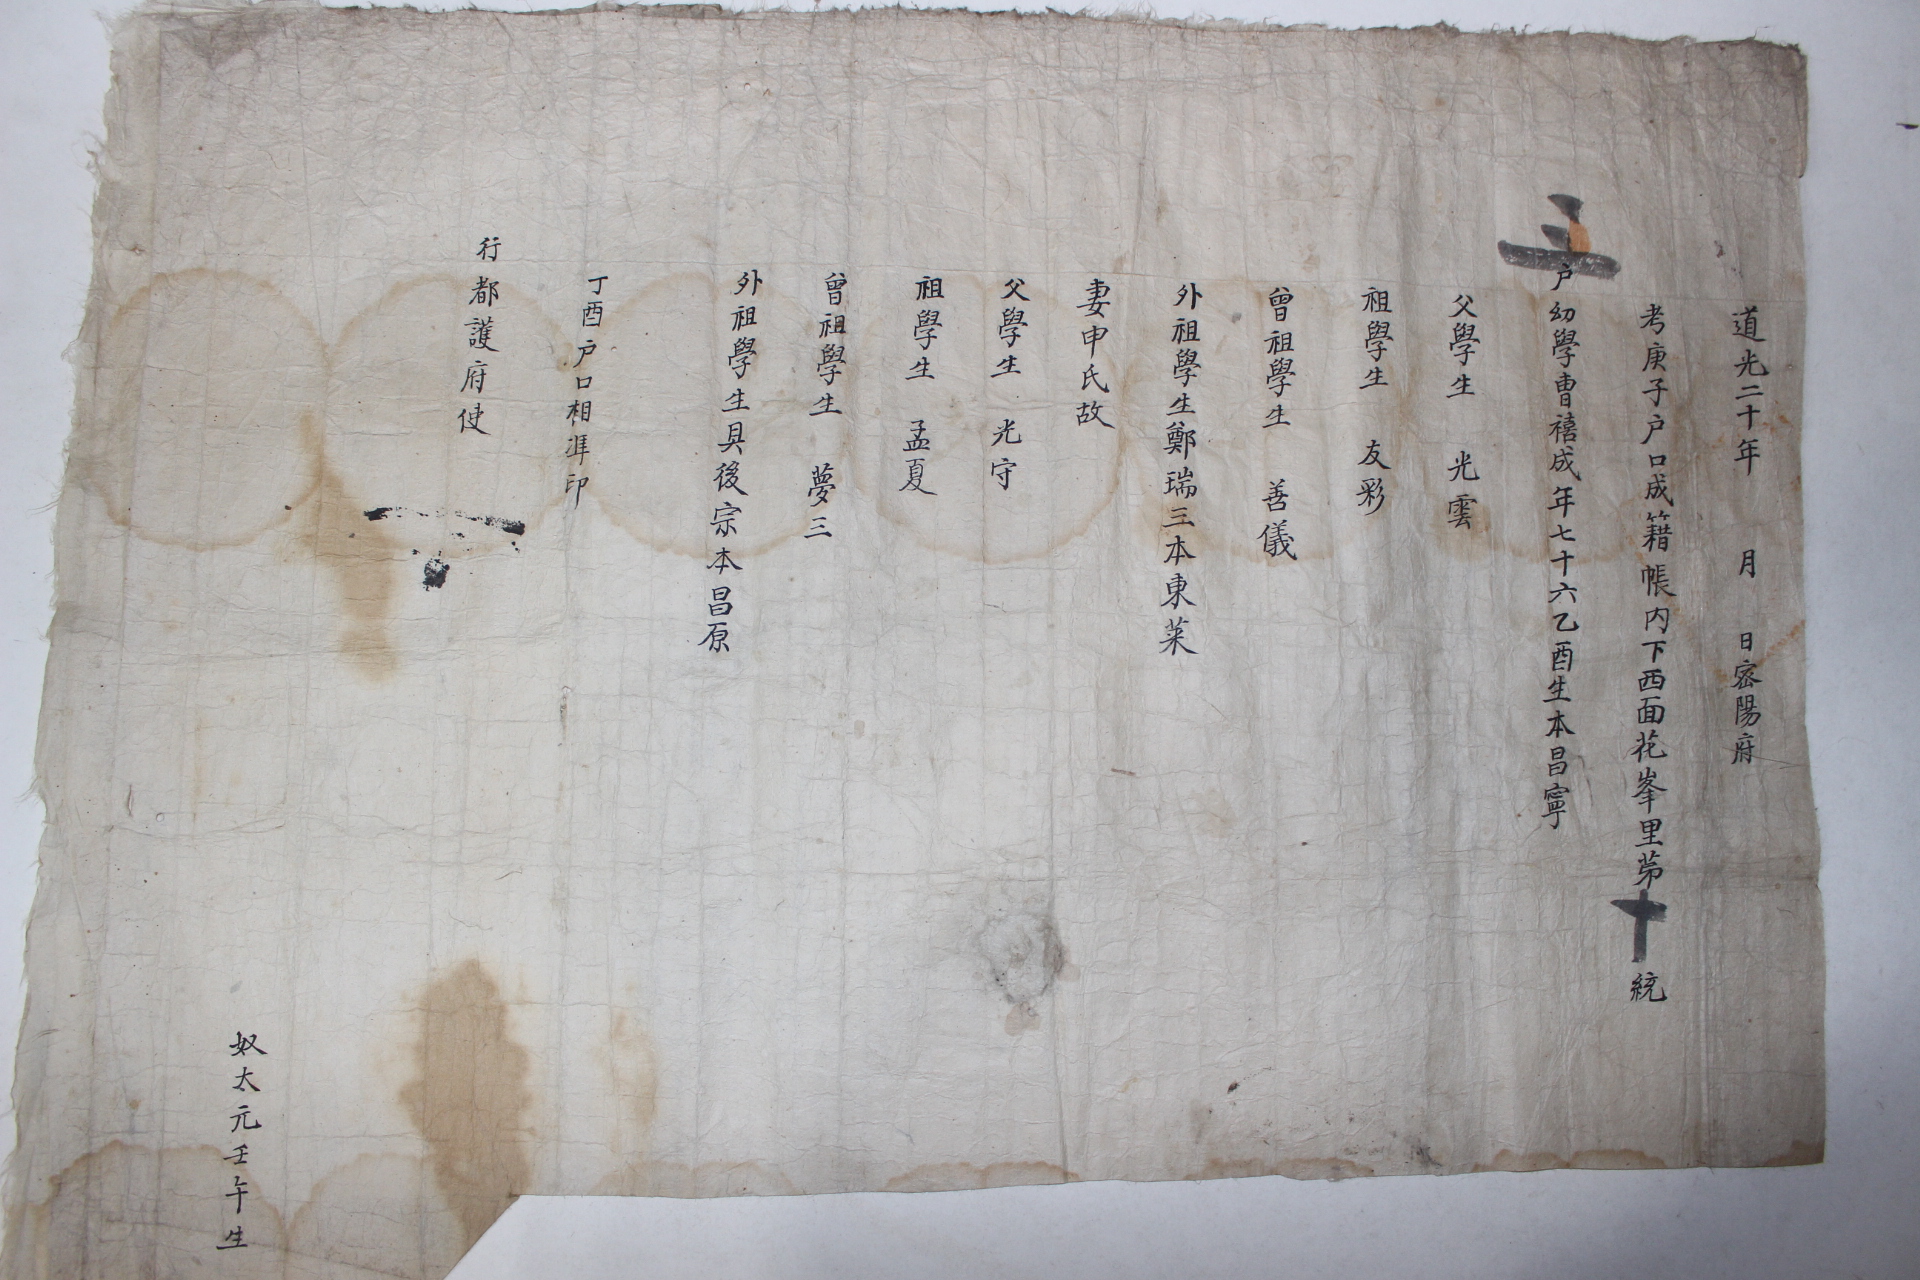 道光二十年 月 日密陽府
考庚子戶口成籍帳內下西面花峯里第十統
三
戶幼學曺禧成年七十六乙酉生本昌寧
父學生 光雲
祖學生 友彩
曾祖學生 善儀
外祖學生鄭瑞三本東萊
妻申氏故
父學生 光守
祖學生 孟夏
曾祖學生 夢三
外祖學生具後宗本昌原
丁酉戶口相準印
行都護府使
奴太元壬午生